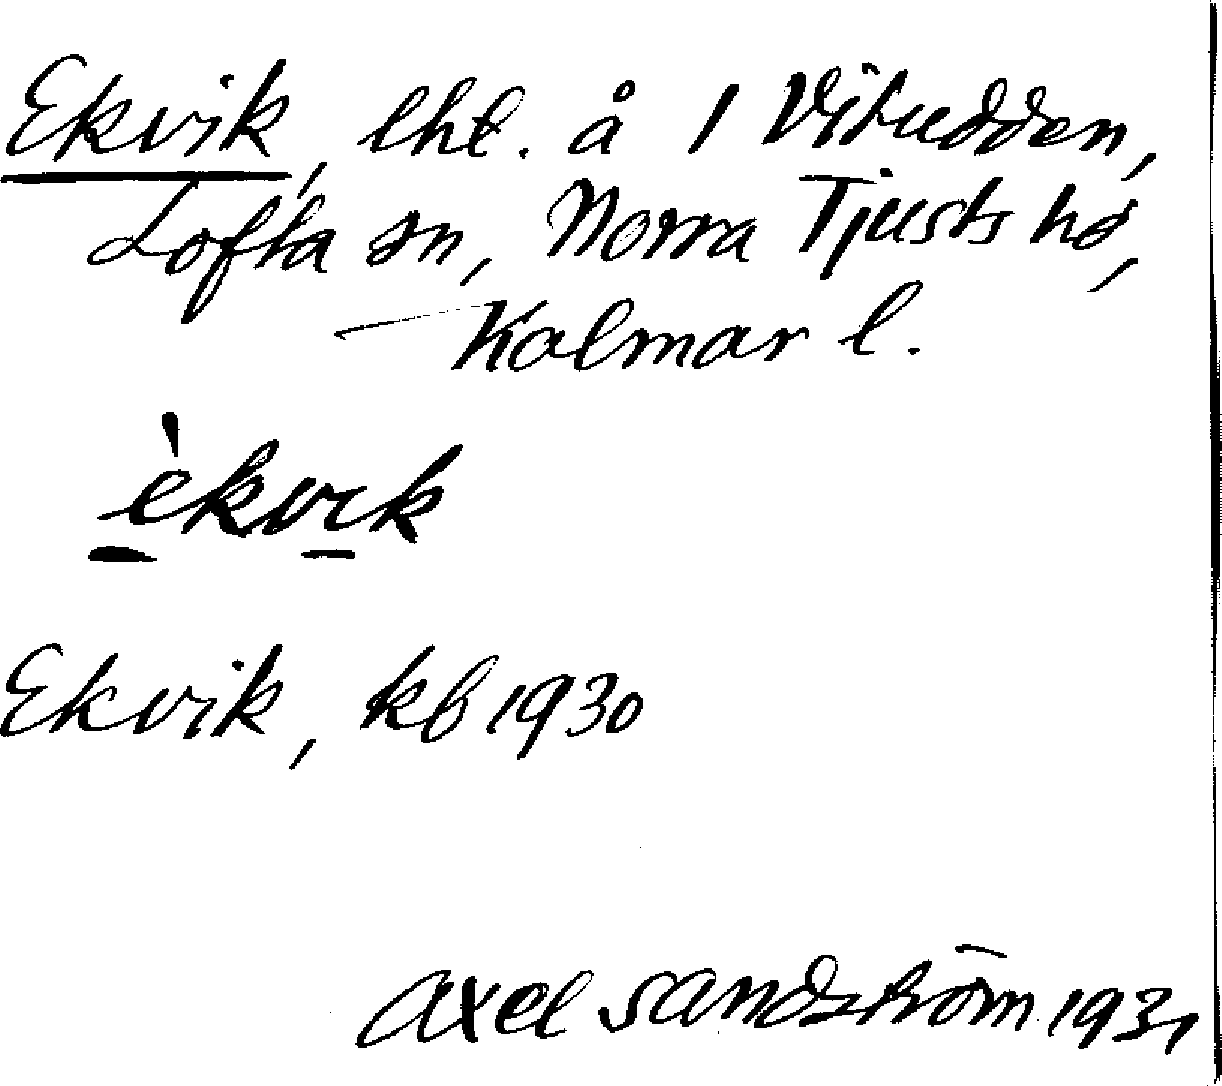 Ekvik, lht. å 1 Vituddden,
Lofta sn, Norra Tjusts hd,
Kalmar l.
èkvik
Ekvik, kb 1930
Axel Sandström 1931